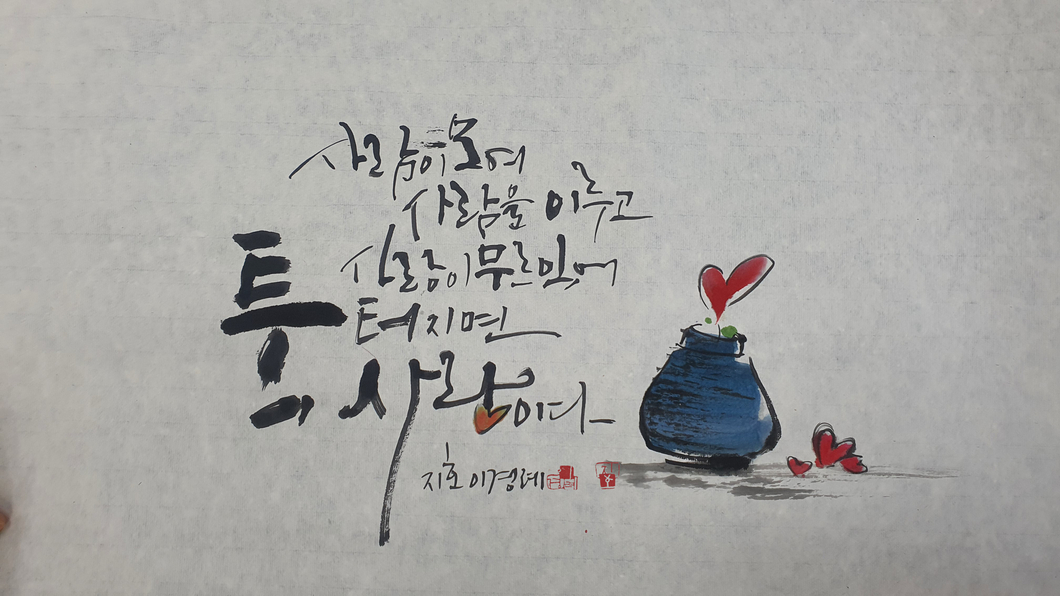 사람이 모여
사람을 이루고
사랑이 무르익어
툭 터지면
사랑이다
지호 이경례